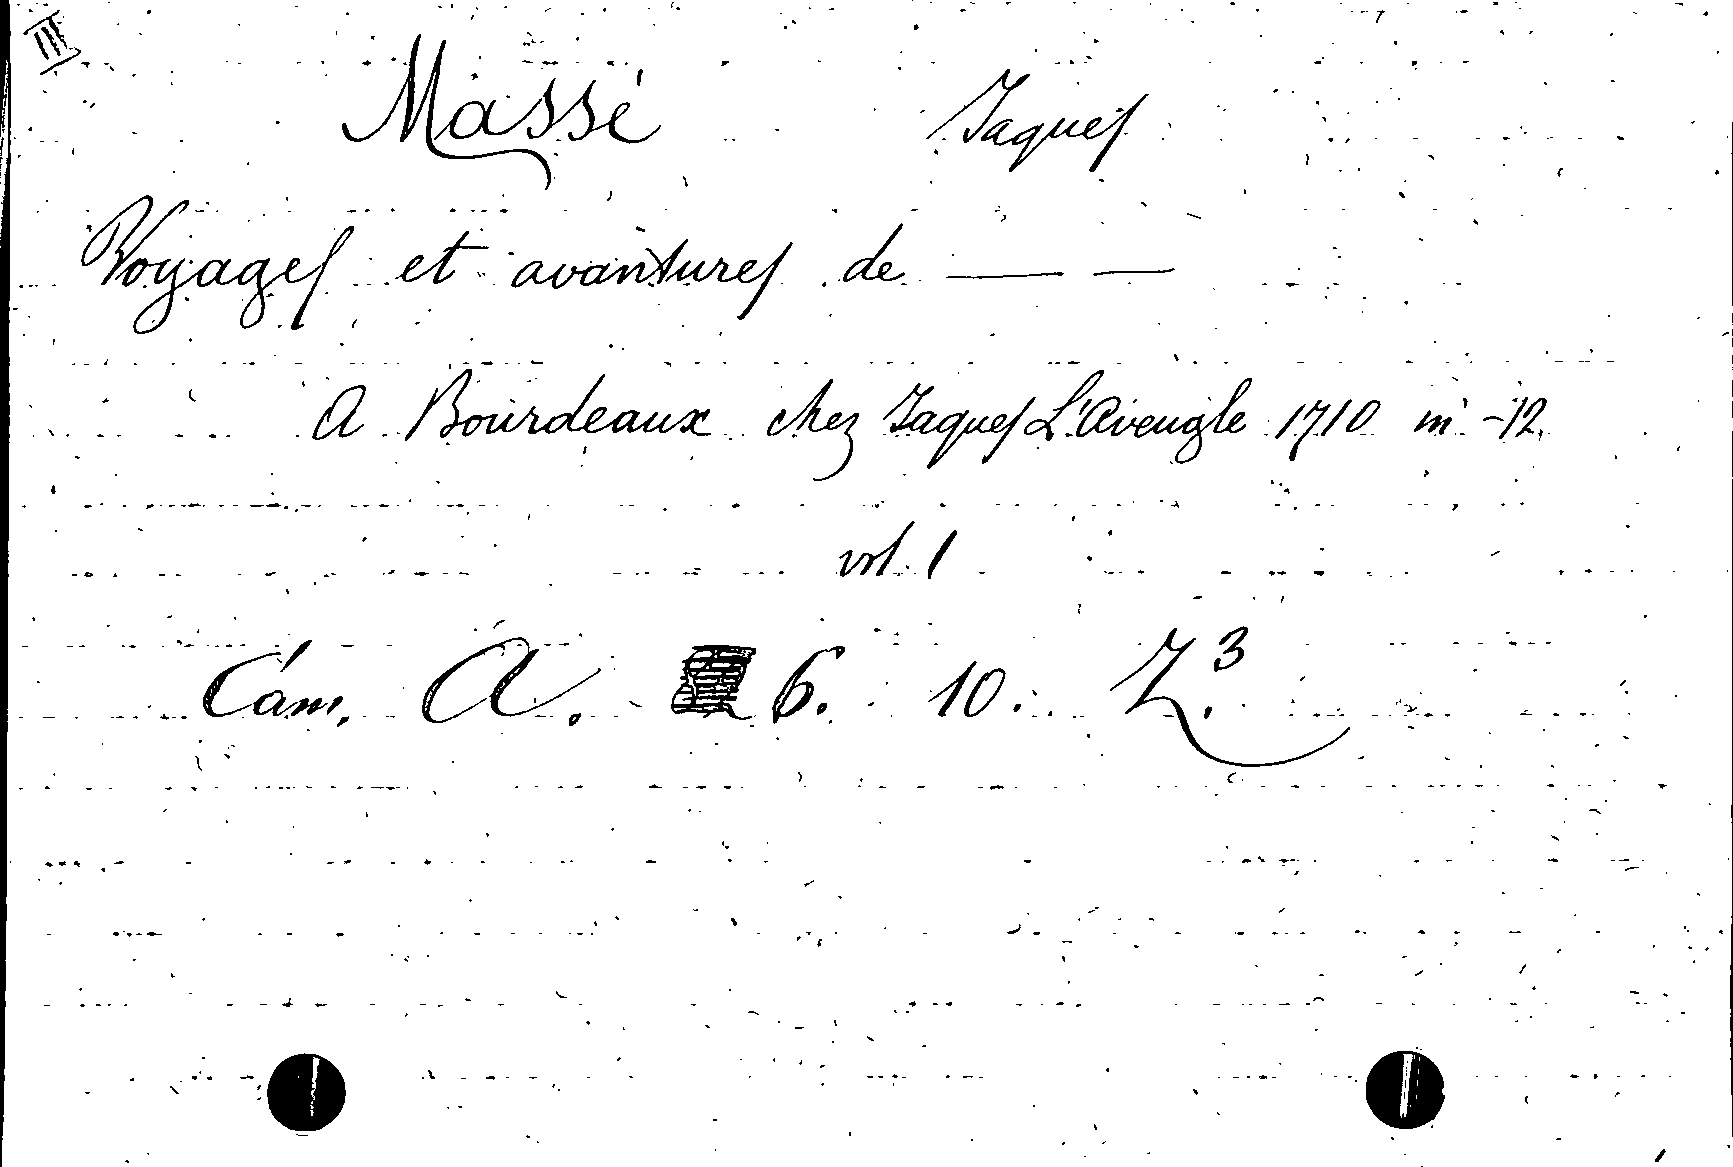 III
Massé Jaques
Voyages et avantures de — —
A Bourdeaux chez Jaques L'Aveugle 1710 in -12.
vol. 1
Cam. A. 6. 10. Z.3